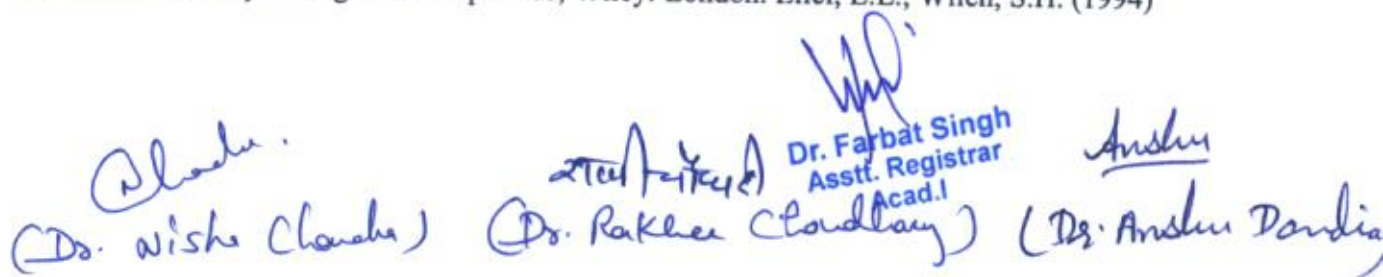 Wiley. London. Eliel, E.L., Wilen, S.H. (1994)
Dr. Farbat Singh
Asstt. Registrar
Acad.I
Anshu
(Dr. Nisha Chandra) (Dr. Rakhee Choudhary) (Dr. Anshu Dandia